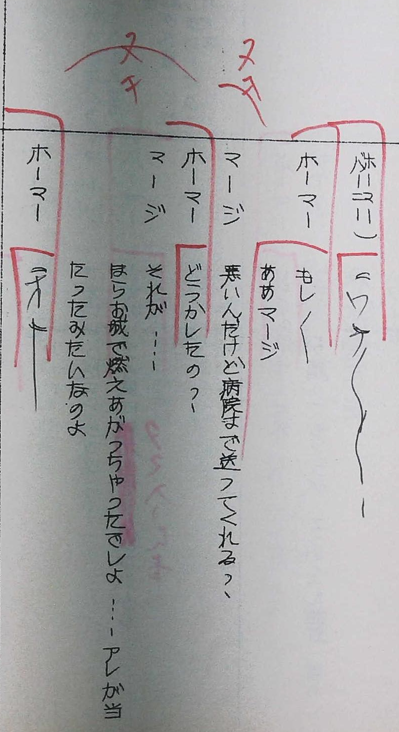 ヌキ
ヌキ
ホーマー もし〱
ああマージ
マージ 悪いんだけど病院まで送ってくれる?
ホーマー どうかしたの?
マージ それが……
ほらお城で燃えあがっちゃったでしょ……アレが当
たったみたいなのよ
ホーマー